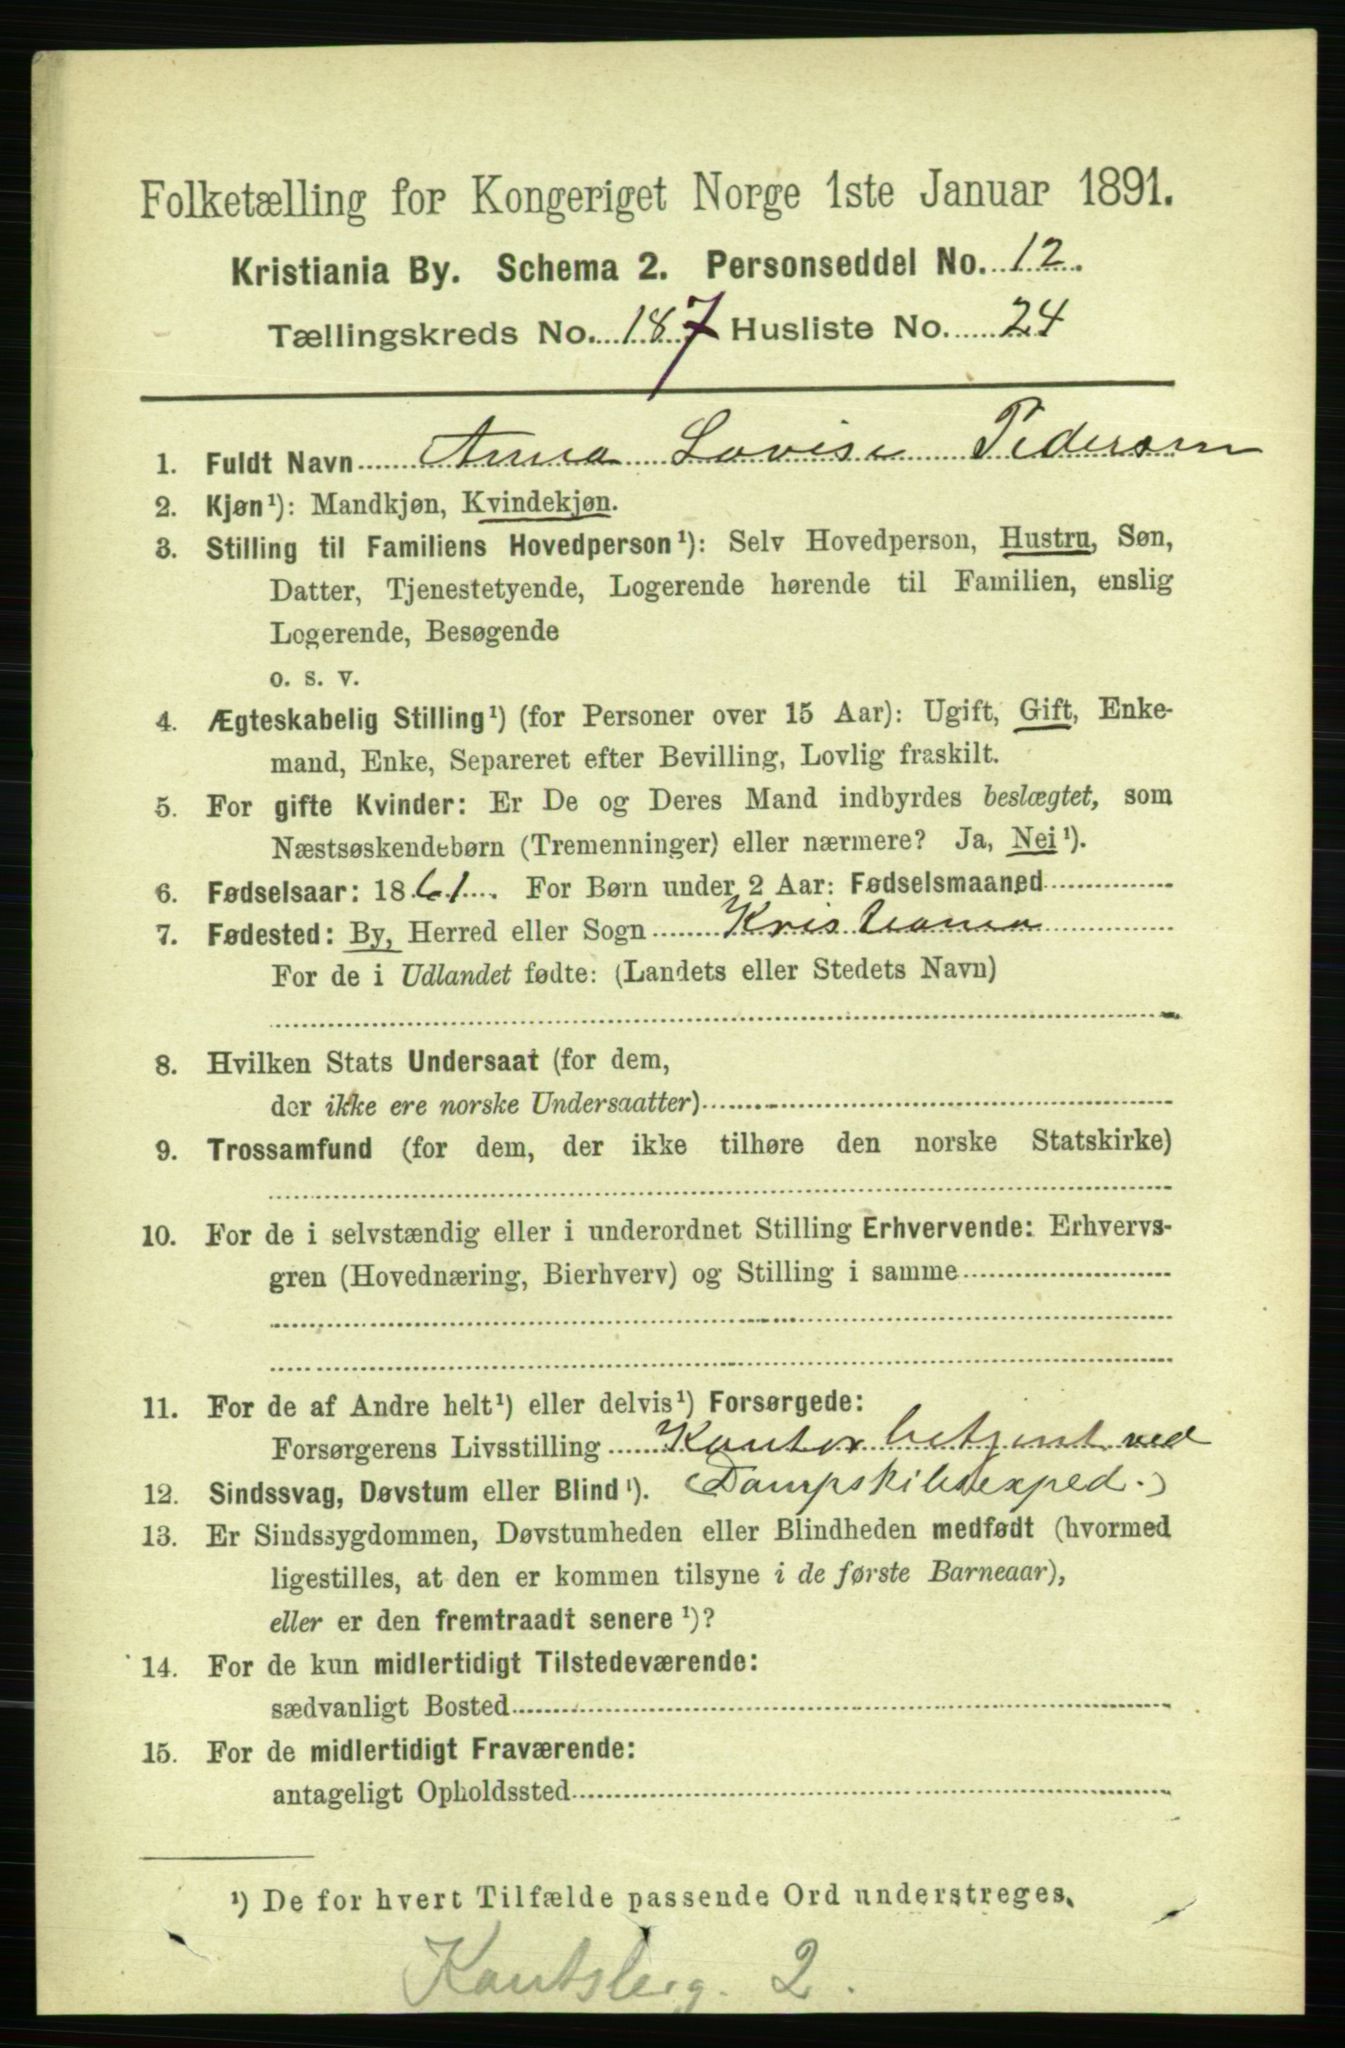 Folketælling for Kongeriget Norge 1ste Januar 1891.
Kristiania By. Schema 2. Personseddel No. 12.
Tællingskreds No. 187 Husliste No. 24
1. Fuldt Navn Anna Lovise Pedersen
2. Kjøn¹): Mandkjøn, Kvindekjøn.
3. Stilling til Familiens Hovedperson¹): Selv Hovedperson, Hustru, Søn,
Datter, Tjenestetyende, Logerende hørende til Familien, enslig
Logerende, Besøgende
o. s. v.
4. Ægteskabelig Stilling¹) (for Personer over 15 Aar): Ugift, Gift, Enke-
mand, Enke, Separeret efter Bevilling, Lovlig fraskilt.
5. For gifte Kvinder: Er De og Deres Mand indbyrdes beslægtet, som
Næstsøskendebørn (Tremenninger) eller nærmere? Ja, Nei¹).
6. Fødselsaar: 1861. For Børn under 2 Aar: Fødselsmaaned
7. Fødested: By, Herred eller Sogn Kristiania
For de i Udlandet fødte: (Landets eller Stedets Navn)
8. Hvilken Stats Undersaat (for dem,
der ikke ere norske Undersaatter)
9. Trossamfund (for dem, der ikke tilhøre den norske Statskirke)
10. For de i selvstændig eller i underordnet Stilling Erhvervende: Erhvervs-
gren (Hovednæring, Bierhverv) og Stilling i samme
11. For de af Andre helt¹) eller delvis¹) Forsørgede:
Forsørgerens Livsstilling Kontorbetjent ved
12. Sindssvag, Døvstum eller Blind¹). Dampskibsexped.
13. Er Sindssygdommen, Døvstumheden eller Blindheden medfødt (hvormed
ligestilles, at den er kommen tilsyne i de første Barneaar),
eller er den fremtraadt senere¹)?
14. For de kun midlertidigt Tilstedeværende:
sædvanligt Bosted
15. For de midlertidigt Fraværende:
antageligt Opholdssted
¹) De for hvert Tilfælde passende Ord understreges.
2.